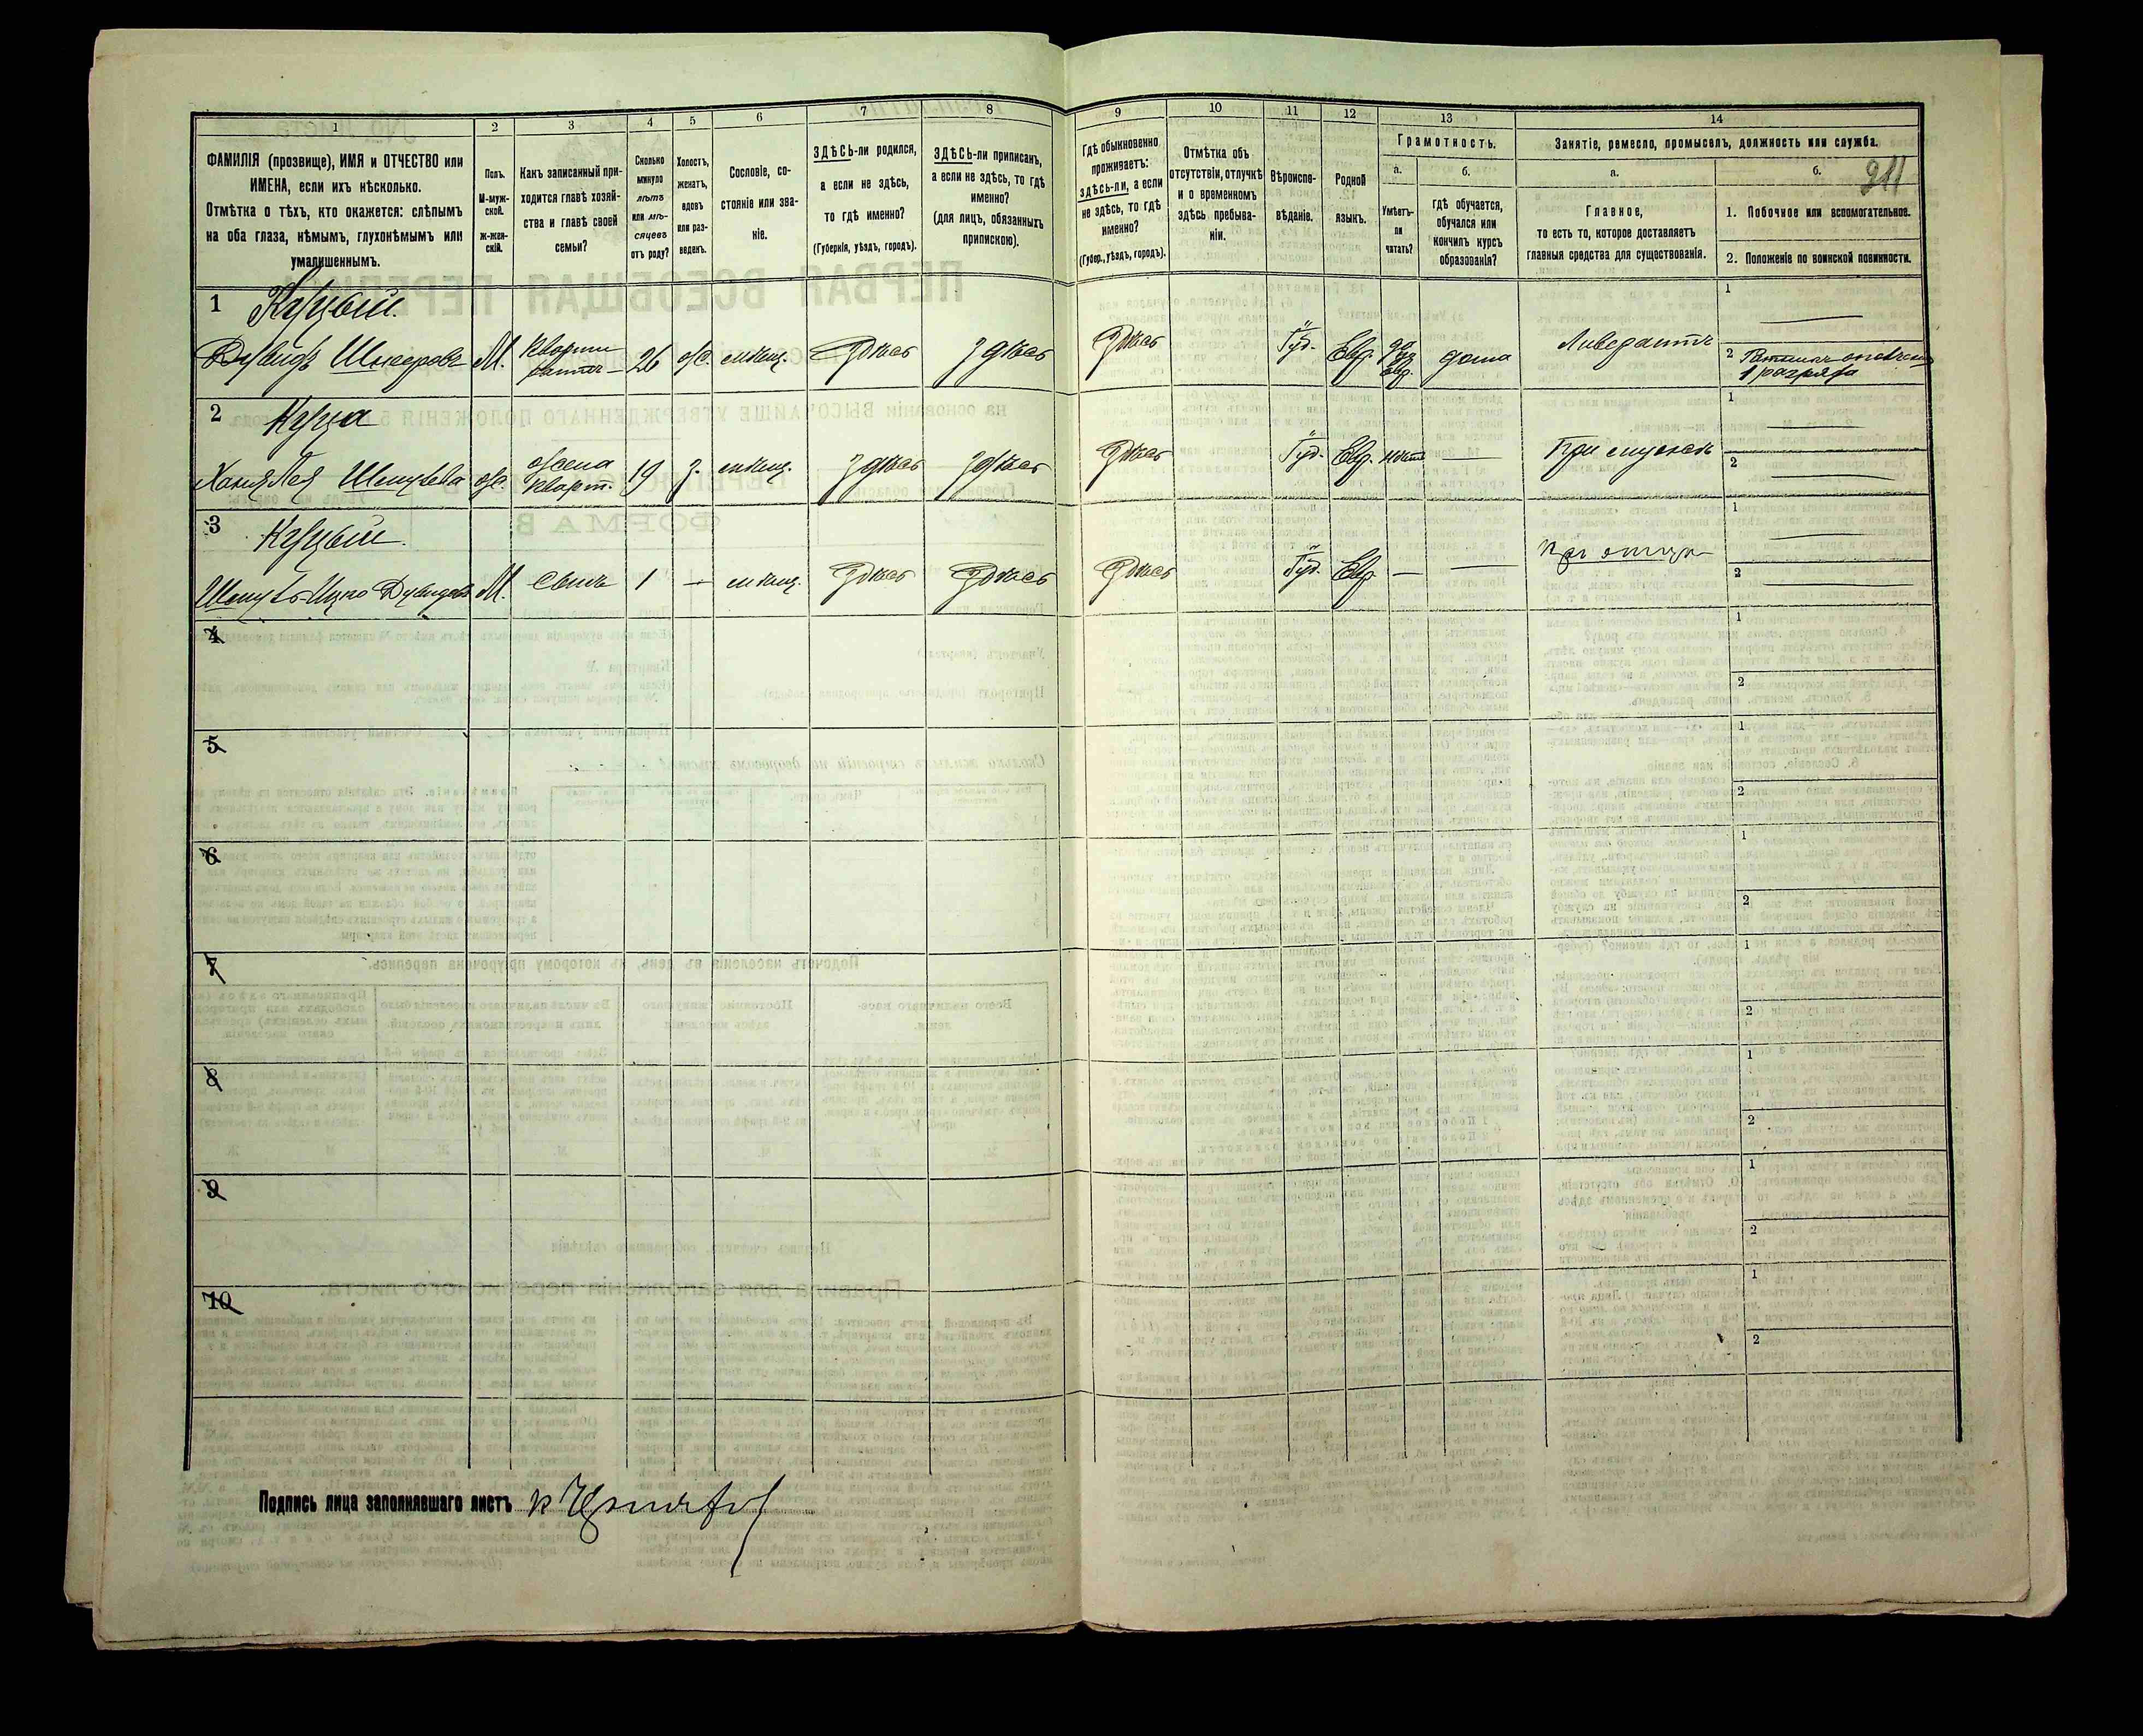 1
2
3
4
5
6
7
8
ФАМИЛІЯ (прозвище), ИМЯ и ОТЧЕСТВО или
ИМЕНА, если ихъ нѣсколько.
Отмѣтка о тѣхъ, кто окажется: слѣпымъ
на оба глаза, нѣмымъ, глухонѣмымъ или
умалишеннымъ.
Полъ.
М-муж-
ской.
ж-жен-
скій.
Какъ записанный при-
ходится главѣ хозяй-
ства и главѣ своей
семьи?
Сколько
минуло
лѣтъ
или мѣ-
сяцевъ
отъ роду?
Холостъ,
женатъ,
вдовъ
или раз-
веденъ.
Сословіе, со-
стояніе или зва-
ніе.
ЗДѢСЬ-ли родился,
а если не здѣсь,
то гдѣ именно?
(Губернія, уѣздъ, городъ).
ЗДѢСЬ-ли приписанъ,
а если не здѣсь, то гдѣ
именно?
(для лицъ, обязанныхъ
припискою).
9
10
11
12
13
14
Гдѣ обыкновенно
проживаетъ:
здѣсь-ли, а если
не здѣсь, то гдѣ
именно?
(Губер., уѣздъ, городъ).
Отмѣтка объ
отсутствіи, отлучкѣ
и о временномъ
здѣсь пребыва-
ніи.
Вѣроиспо-
вѣданіе.
Родной
языкъ.
Грамотность.
а.
Умѣетъ-
ли
читать?
б.
гдѣ обучается,
обучался или
кончилъ курсъ
образованія?
Занятіе, ремесло, промыселъ, должность или служба.
а.
Главное,
то есть то, которое доставляетъ
главныя средства для существованія.
б.
211
1. Побочное или вспомогательное.
2. Положеніе по воинской повинности.
1 Куцый.
М. 26 ж. мѣщ. Здѣсь Здѣсь Здѣсь Іуд. Евр. дома
1
2
1 разряда
2 Куца
Хая жена 19 з. мѣщ. Здѣсь Здѣсь Здѣсь Іуд. Евр. нѣтъ — При мужѣ
кварт.
1
2
3 Куцый.
М. сынъ 1 — мѣщ. Здѣсь Здѣсь Здѣсь Іуд. Евр. — — при отцѣ
1
2
4
1
2
5
1
2
6
1
2
7
1
2
8
1
2
9
1
2
10
1
2
Подпись лица заполнявшаго листъ